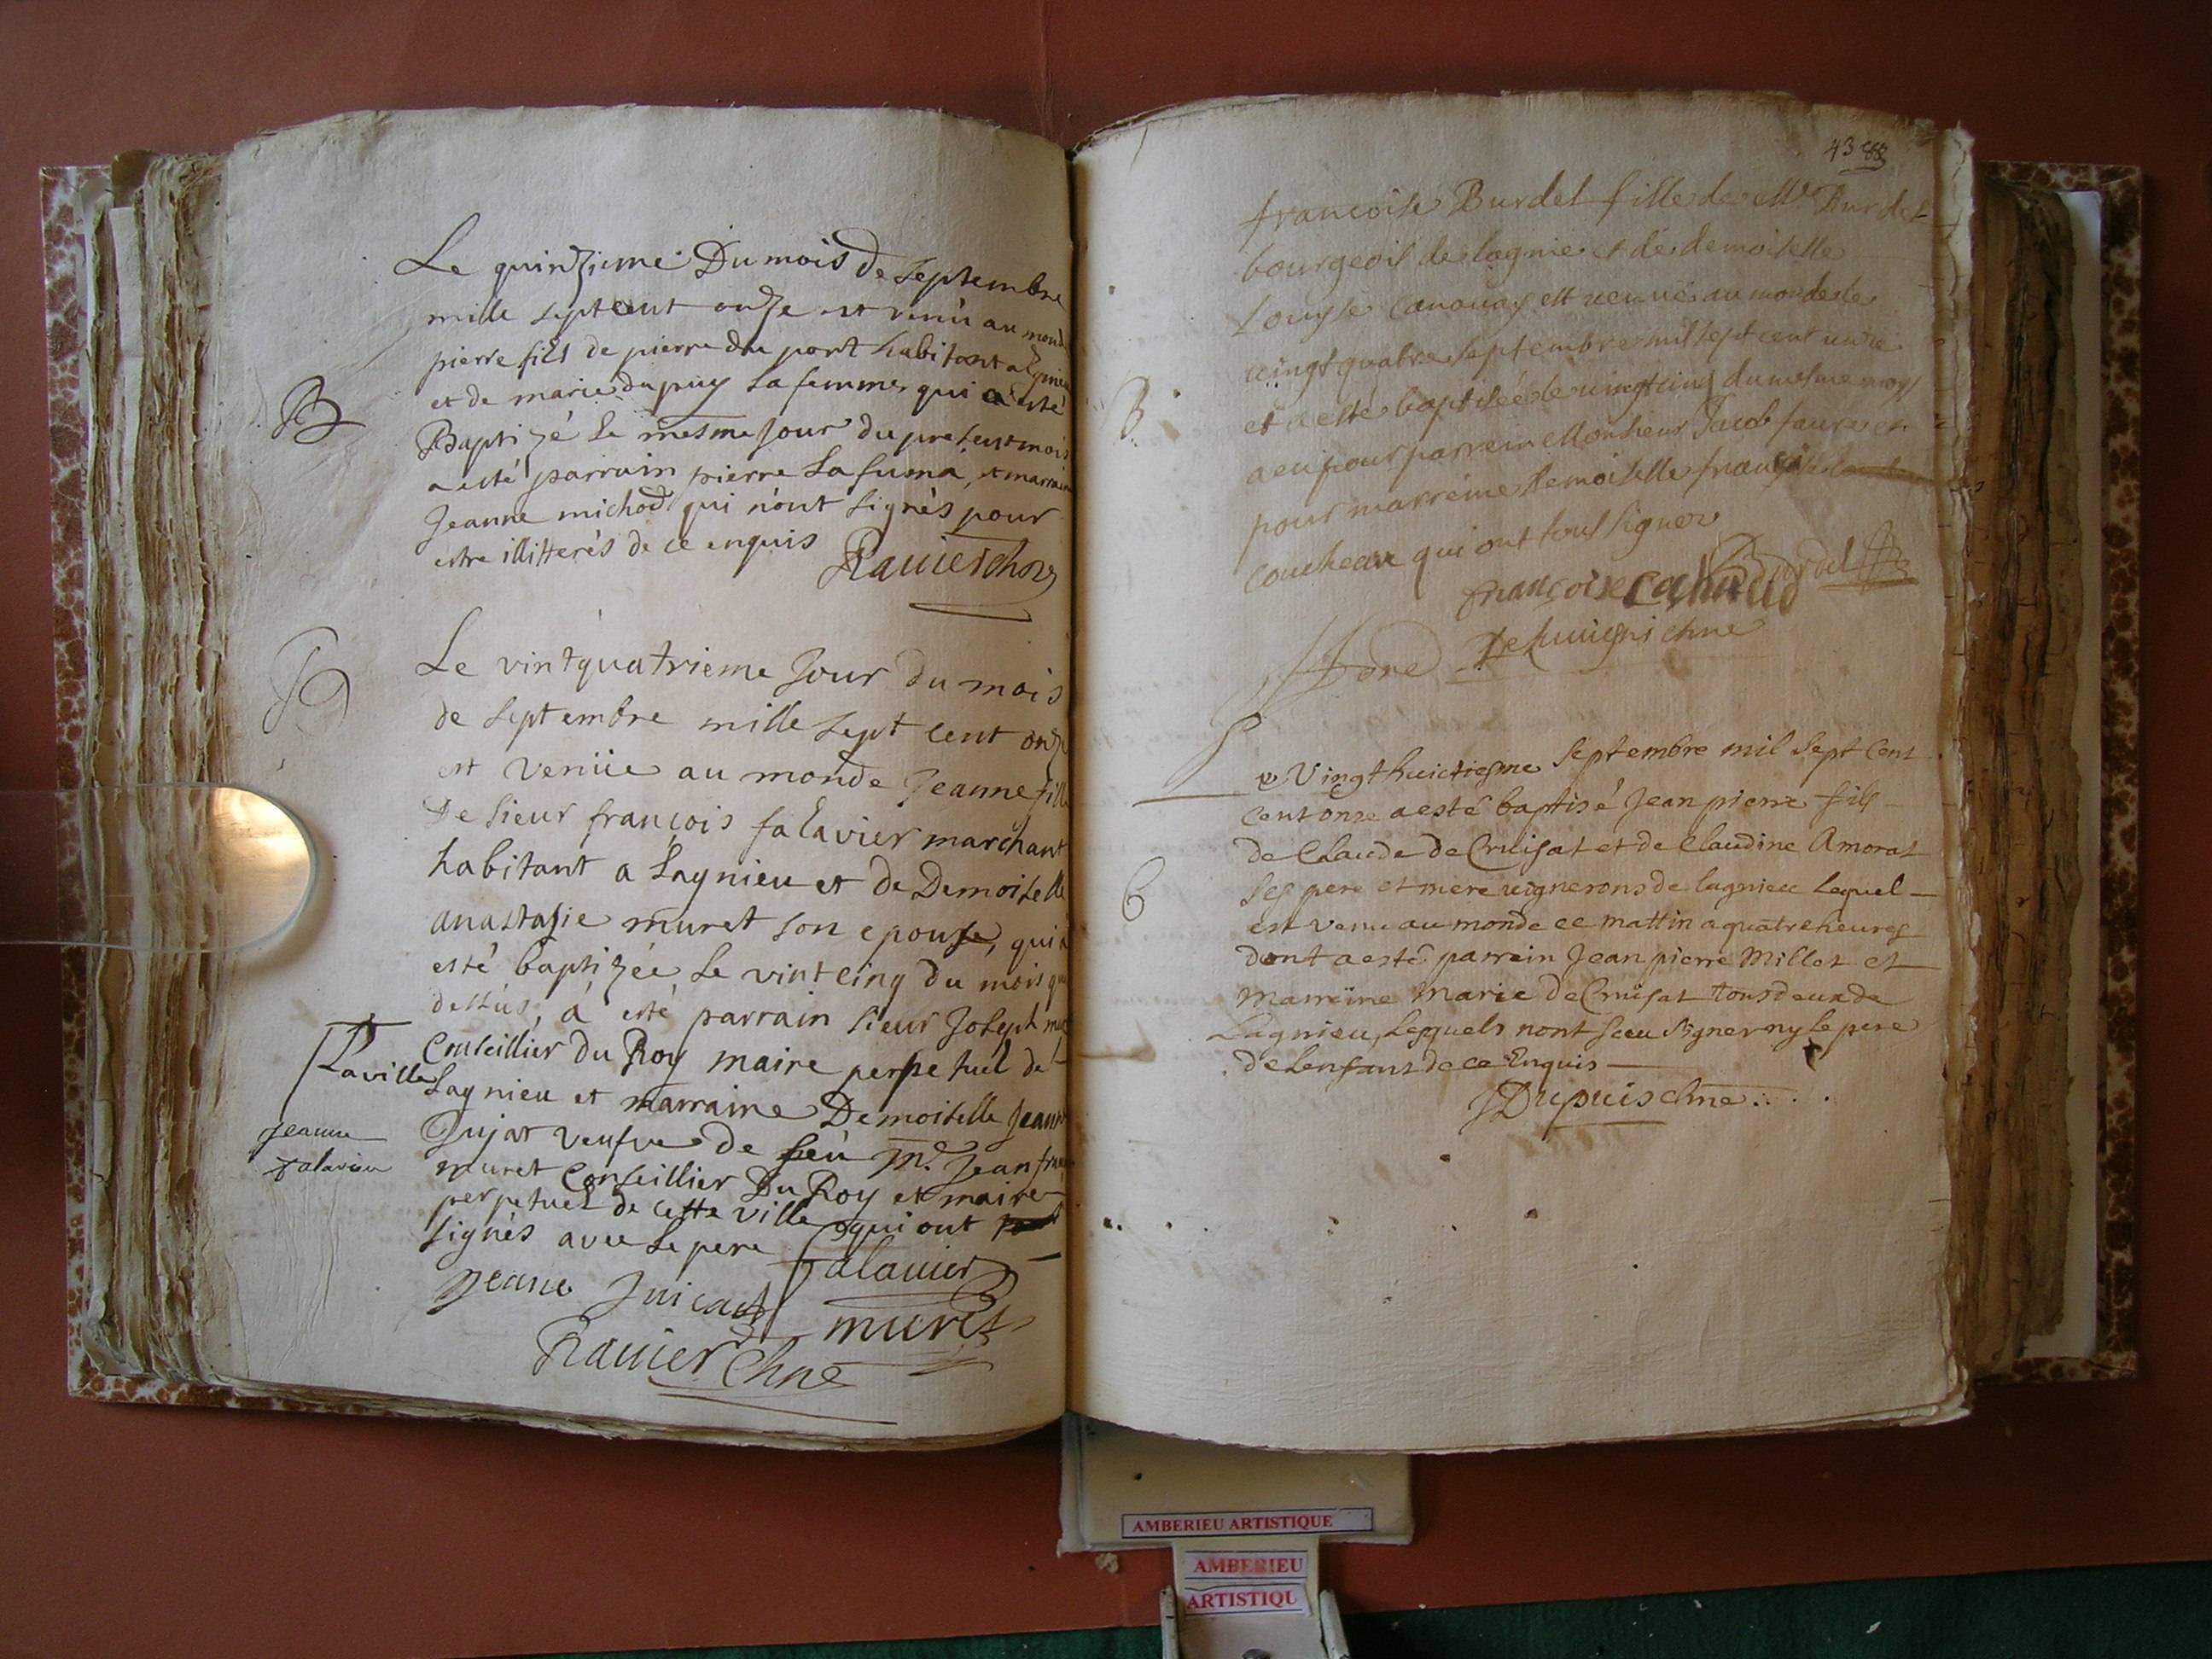 Le quinzieme Du mois de septembre
mille septcent onze est venu au monde
pierre fils de pierre du port habitant a
et de marie dupuy sa femme qui a esté
Baptizé le mesme jour du present mois
a esté parrain pierre Lafuma, et marraine
Jeanne michod qui n'ont signés pour
estre illitterés de ce enquis
Ravier
B
Le vintquatrieme Jour du mois
de septembre mille sept cent onze
est venüe au monde Jeanne fille
De sieur françois falavier marchant
habitant a Lagnieu et de Demoiselle
anastasie muret son epouse, qui a
esté baptizée le vintcinq du mois que
dessus, a esté parrain sieur Joseph
Conseillier du Roy maire perpetuel de
Laville
Lagnieu et marraine Demoiselle Jeanne
Jujat veufve de feu Mr. Jean
muret Conseillier Du Roy et maire
perpetuel de cette ville qui ont
signés avec le pere
Jeanne
falavier
Jeane
falavier
muret
Ravier Chne
43
francoise Burdel fille de Burdel
bourgeois de lagnie et de demoiselle
Louyse est venue au monde le
vingt quatre septembre mil sept cent unze
et a esté baptisée le vingt cinq du mesme moys
a eu pour parrein Monsieur Jacob faure et
pour marreine demoiselle
qui ont tous signer
B
Burdel
françoise
Le Vingthuictiesme Septembre mil Sept Cent
Cent onze a esté baptisé Jean pierre fils
de Claude de Cruisat et de Claudine Amorat
Ses pere et mere vignerons de lagnieu Lequel
est venu au monde ce mattin a quatre heures
dont a esté parrein Jean pierre Millet et
Marreine Marie de Cruisat tous deux de
Lagnieu, Lesquels nont sceu Signer ny le pere
de Lenfant de ce Enquis
Dupuis chne
AMBERIEU ARTISTIQUE
AMBERIEU
ARTISTIQU